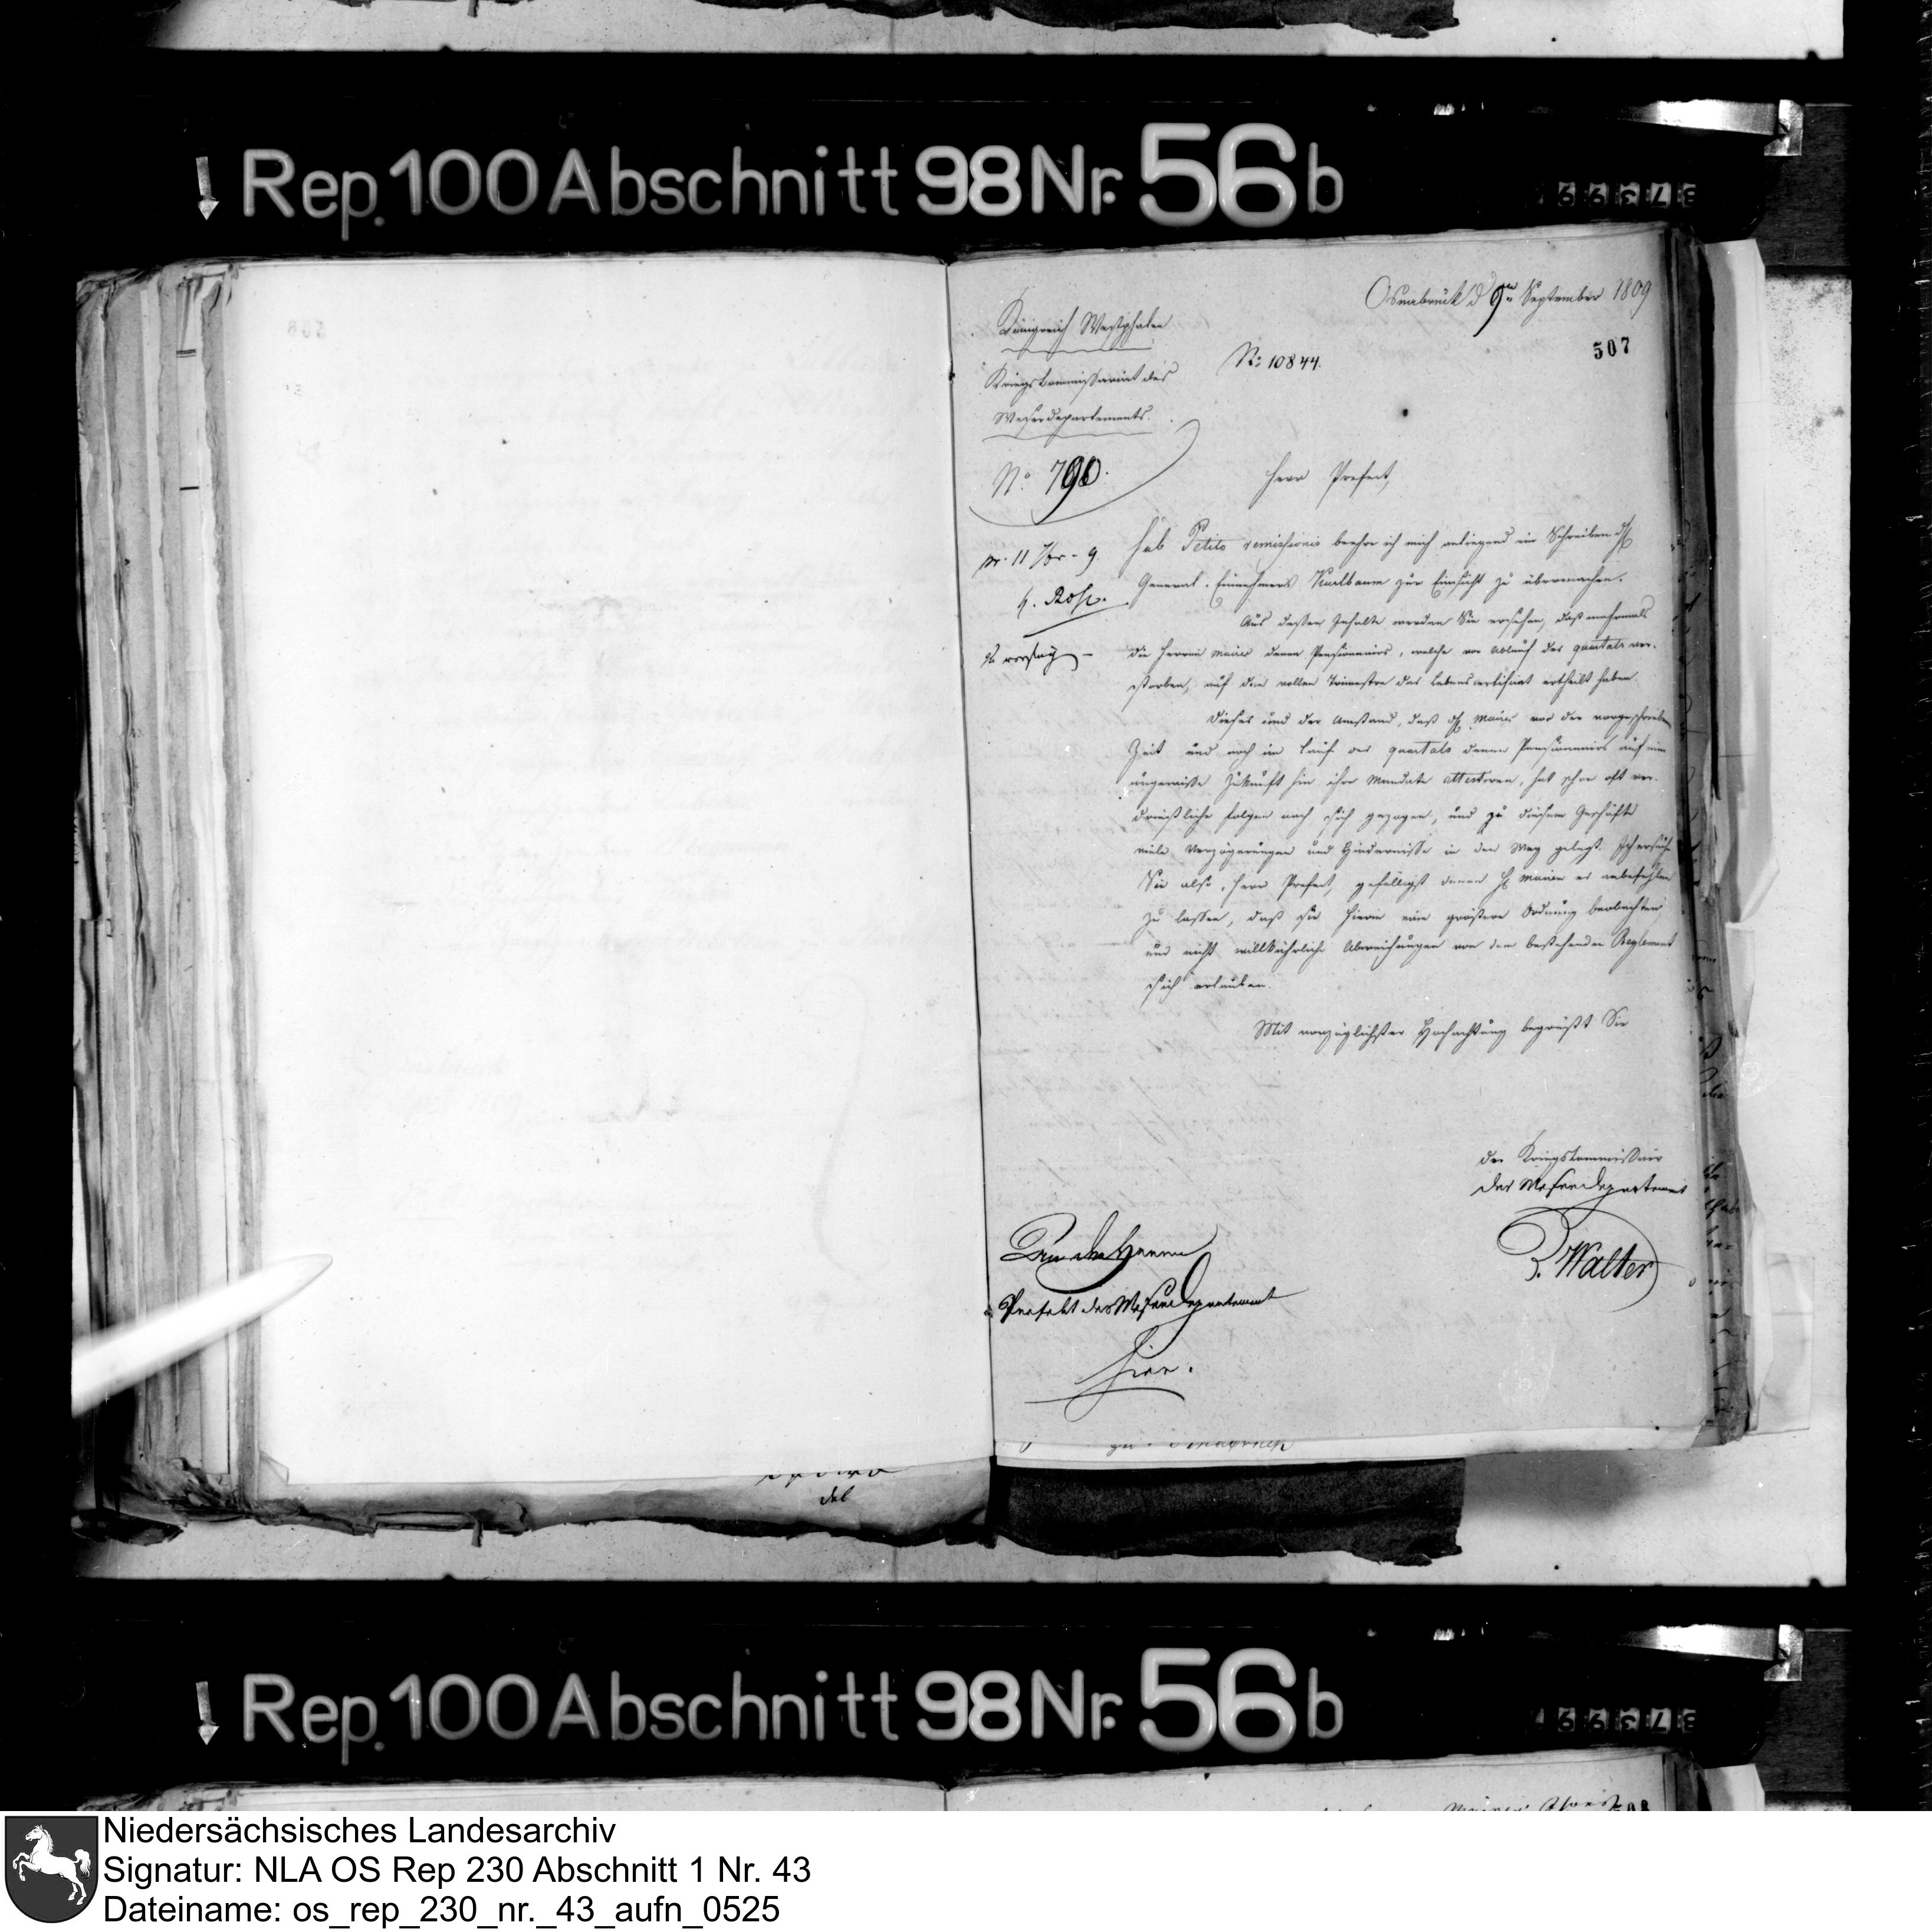 Rep. 100 Abschnitt 98 Nr. 56b
Osnabrück d 9ten September 1809
507
Königreich Westphalen
No 10844.
Kriegskommissariat des
Weserdepartements.
No 790.
Herr Prefect,
pr. 11 7br. 9.
Sub Petito remissionis beehre ich mich anliegend ein Schreiben des
General-Einnehmers Kurlbaum zur Einsicht zu übermachen.
Aus deßen Inhalte werden Sie ersehen, daß mehrmals
die Herren maires denen Pensionnairs, welche vor Ablauf des quartals ver-
storben, auf den vollen Trimestre das Lebenscertificat ertheilt haben.
Dieses und der Umstand, daß maires vor der vorgeschrieben
Zeit und noch im Lauf des quartals denen Pensionnairs auf eine
ungewiße Zukunft hin ihre Mandate attestiren, hat schon oft ver-
drießliche Folgen nach sich gezogen, und zu diesem Geschäfte
viele Verzögerungen und Hindernisse in den Weg gelegt. Ich ersuche
Sie also, Herr Prefect, gefälligst denen H. maires es anbefehlen
zu lassen, daß sie hierin eine größere Ordnung beobachten
und nicht willkührliche Abweichungen von dem bestehenden Reglement
sich erlauben.
Mit vorzüglichster Hochachtung begrüßt Sie
der Kriegskommissair
des Weserdepartements
Walter
Dem Herrn
Prefekt des Weserdepartement
hier.
del
Rep. 100 Abschnitt 98 Nr. 56b
Niedersächsisches Landesarchiv
Signatur: NLA OS Rep 230 Abschnitt 1 Nr. 43
Dateiname: os_rep_230_nr._43_aufn_0525